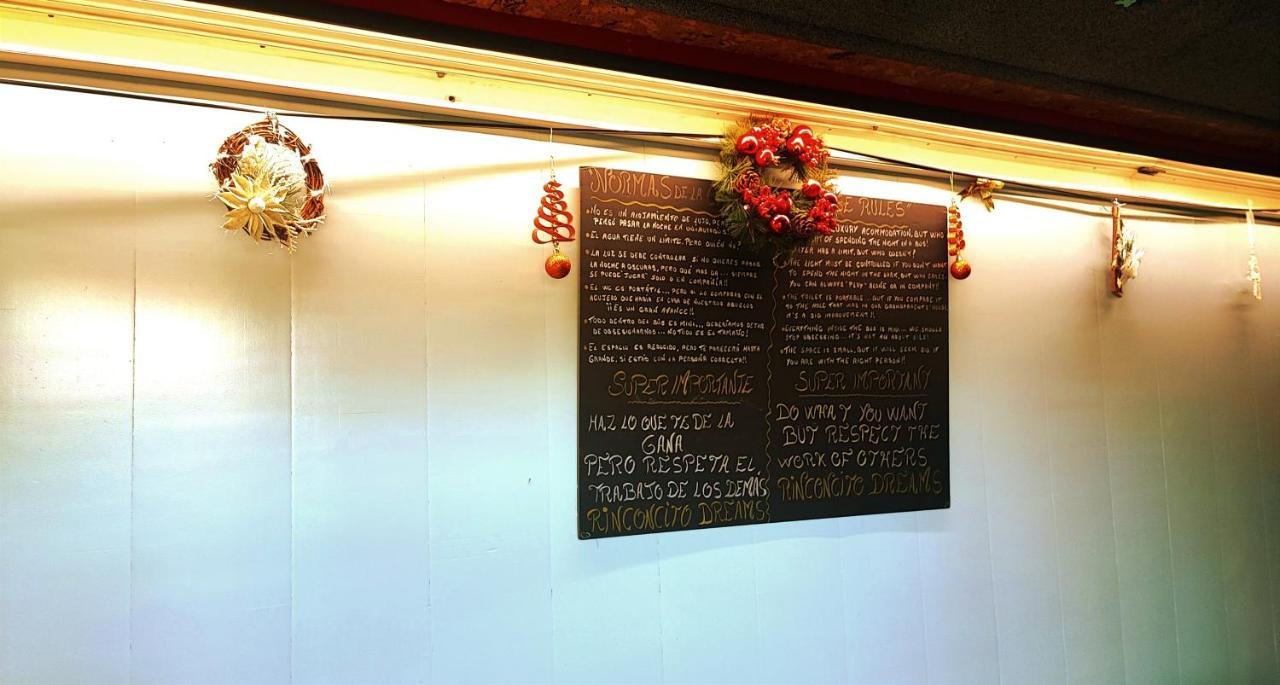 "NORMAS DE LA
• NO ES UN ALOJAMIENTO DE LUJO, PERO
PENSÓ PASAR LA NOCHE EN UN
• EL AGUA TIENE UN LIMITE, PERO QUIÉN NO?
• LA LUZ SE DEBE CONTROLAR SI NO QUIERES PASAR
LA NOCHE A OSCURAS, PERO QUÉ MAS DA... SIEMPRE
SE PUEDE "JUGAR" SOLO O EN COMPAÑÍA!!
• EL WC ES PORTÁTIL... PERO SI LO COMPARAS CON EL
AGUJERO QUE HABÍA EN CASA DE NUESTROS ABUELOS
¡¡ES UN GRAN AVANCE!!
• TODO DENTRO DEL BÚS ES MINI... DEBERÍAMOS DEJAR
DE OBSESIONARNOS... NO TODO ES EL TAMAÑO!
• EL ESPACIO ES REDUCIDO, PERO TE PARECERÁ HASTA
GRANDE, SI ESTÁS CON LA PERSONA CORRECTA!!
SUPER IMPORTANTE
HAZ LO QUE TE DE LA
GANA
PERO RESPETA EL
TRABAJO DE LOS DEMÁS
RINCONCITO DREAMS
SE RULES"
LUXURY ACOMMODATION, BUT WHO
OF SPENDING THE NIGHT IN A BUS!
HAS A LIMIT, BUT WHO DOESN'T?
• THE LIGHT MUST BE CONTROLLED IF YOU DON'T WANT
TO SPEND THE NIGHT IN THE DARK, BUT WHO CARES
YOU CAN ALWAYS "PLAY" ALONE OR IN COMPANY!!
• THE TOILET IS PORTABLE... BUT IF YOU COMPARE IT
TO THE HOLE THAT WAS IN OUR GRANDPARENTS' HOUSE
IT'S A BIG IMPROVEMENT!!
• EVERYTHING INSIDE THE BUS IS MINI... WE SHOULD
STOP OBSESSING... IT'S NOT ALL ABOUT SIZE!
• THE SPACE IS SMALL, BUT IT WILL SEEM BIG IF
YOU ARE WITH THE RIGHT PERSON!!
SUPER IMPORTANT
DO WHAT YOU WANT
BUT RESPECT THE
WORK OF OTHERS
RINCONCITO DREAMS